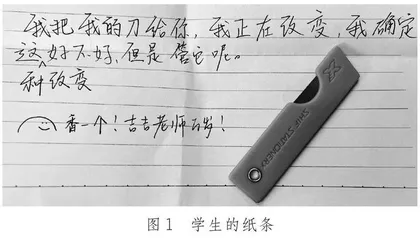 我把我的刀给你，我正在改变，我确定
这好不好，但是管它呢。
种改变
香一个！吉吉老师万岁！
STATIONERY
图1 学生的纸条